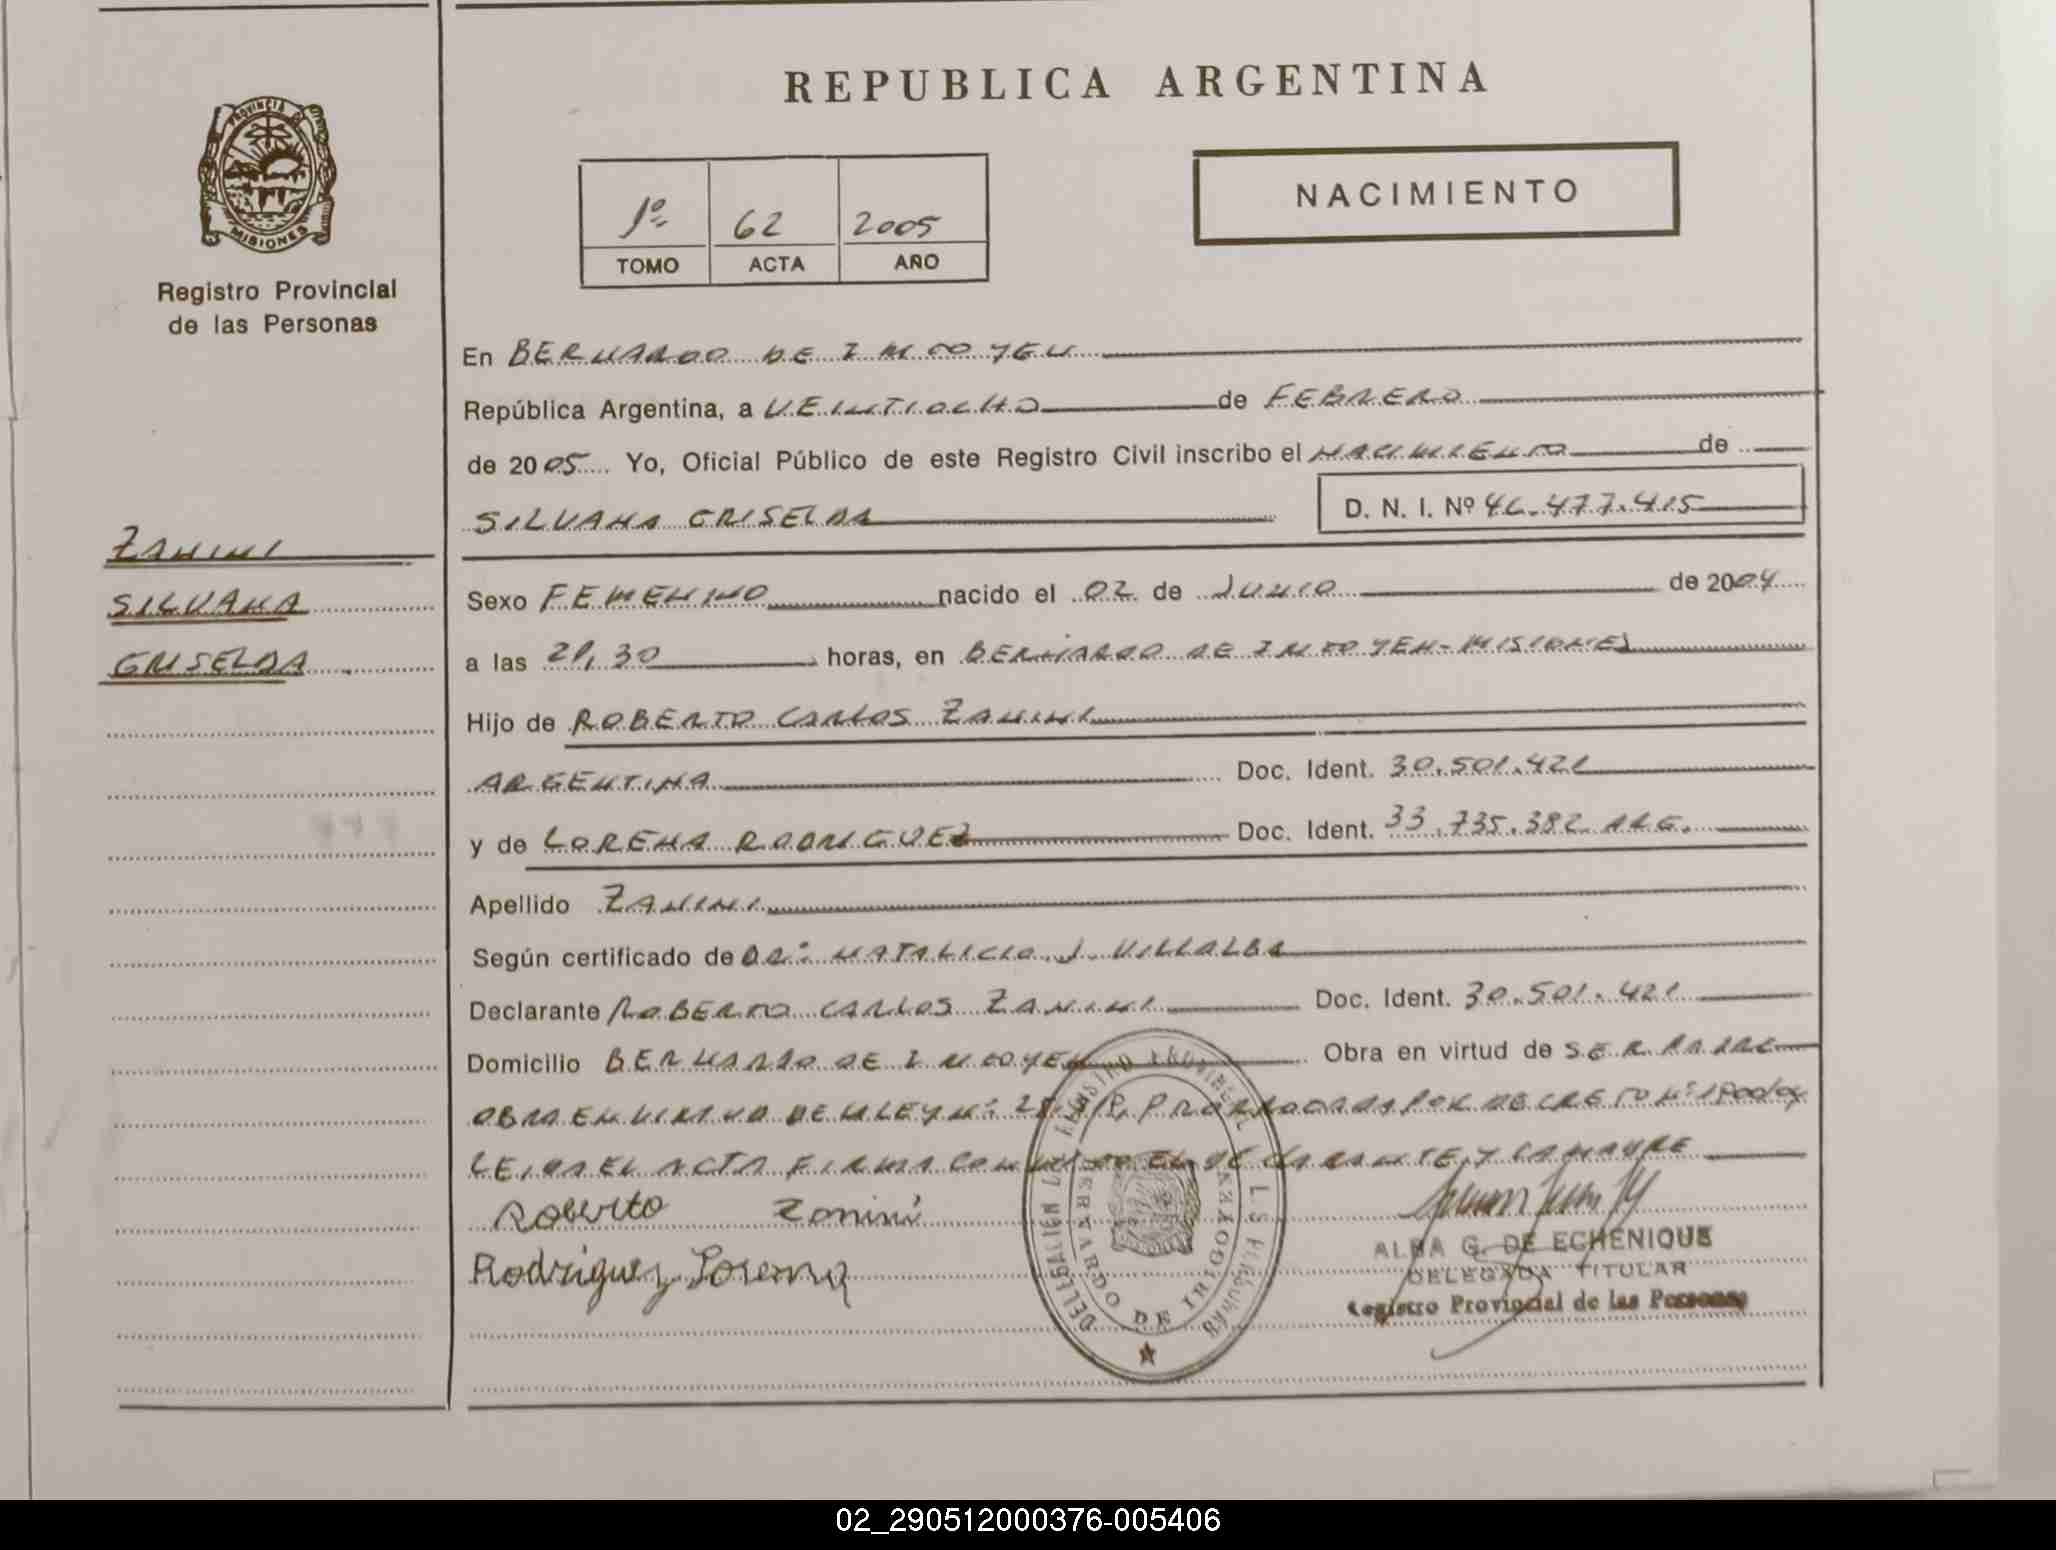 REPUBLICA ARGENTINA
PROVINCIA DE
MISIONES
Registro Provincial
de las Personas
NACIMIENTO
1º 62 2005
TOMO ACTA AÑO
En BERNARDO DE IRIGOYEN
República Argentina, a VEINTIOCHO de FEBRERO
de 2005 Yo, Oficial Público de este Registro Civil inscribo el NACIMIENTO de
SILVANA GRISELDA D. N. I. Nº 46.477.415
ZANINI
SILVANA
GRISELDA
Sexo FEMENINO nacido el 02 de JUNIO de 2004
a las 21,30 horas, en BERNARDO DE IRIGOYEN-MISIONES
Hijo de ROBERTO CARLOS ZANINI
ARGENTINA Doc. Ident. 30.501.421
y de LORENA RODRIGUEZ Doc. Ident. 33.735.382 ARG.
Apellido ZANINI
Según certificado de DR: NATALICIO J. VILLALBA
Declarante ROBERTO CARLOS ZANINI Doc. Ident. 30.501.421
Domicilio BERNARDO DE IRIGOYEN Obra en virtud de SER PADRE
OBRA EN VIRTUD DE LA LEY Nº PRORROGADA POR DECRETO Nº
LEIDA EL ACTA FIRMA CONMIGO EL DECLARANTE Y LA MADRE
Roberto Zanini
Rodriguez Lorena
DELEGACIÓN REGISTRO PROVINCIAL DE LAS PERSONAS
BERNARDO DE IRIGOYEN
ALBA G. DE ECHENIQUE
DELEGADA TITULAR
Registro Provincial de las Personas
02_290512000376-005406